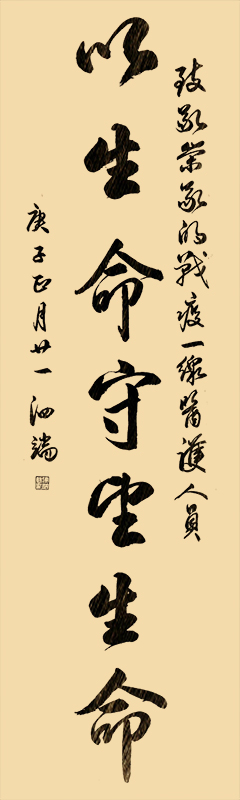 致敬崇敬的戰疫一線醫護人員
以生命守望生命
庚子正月廿一 泗端